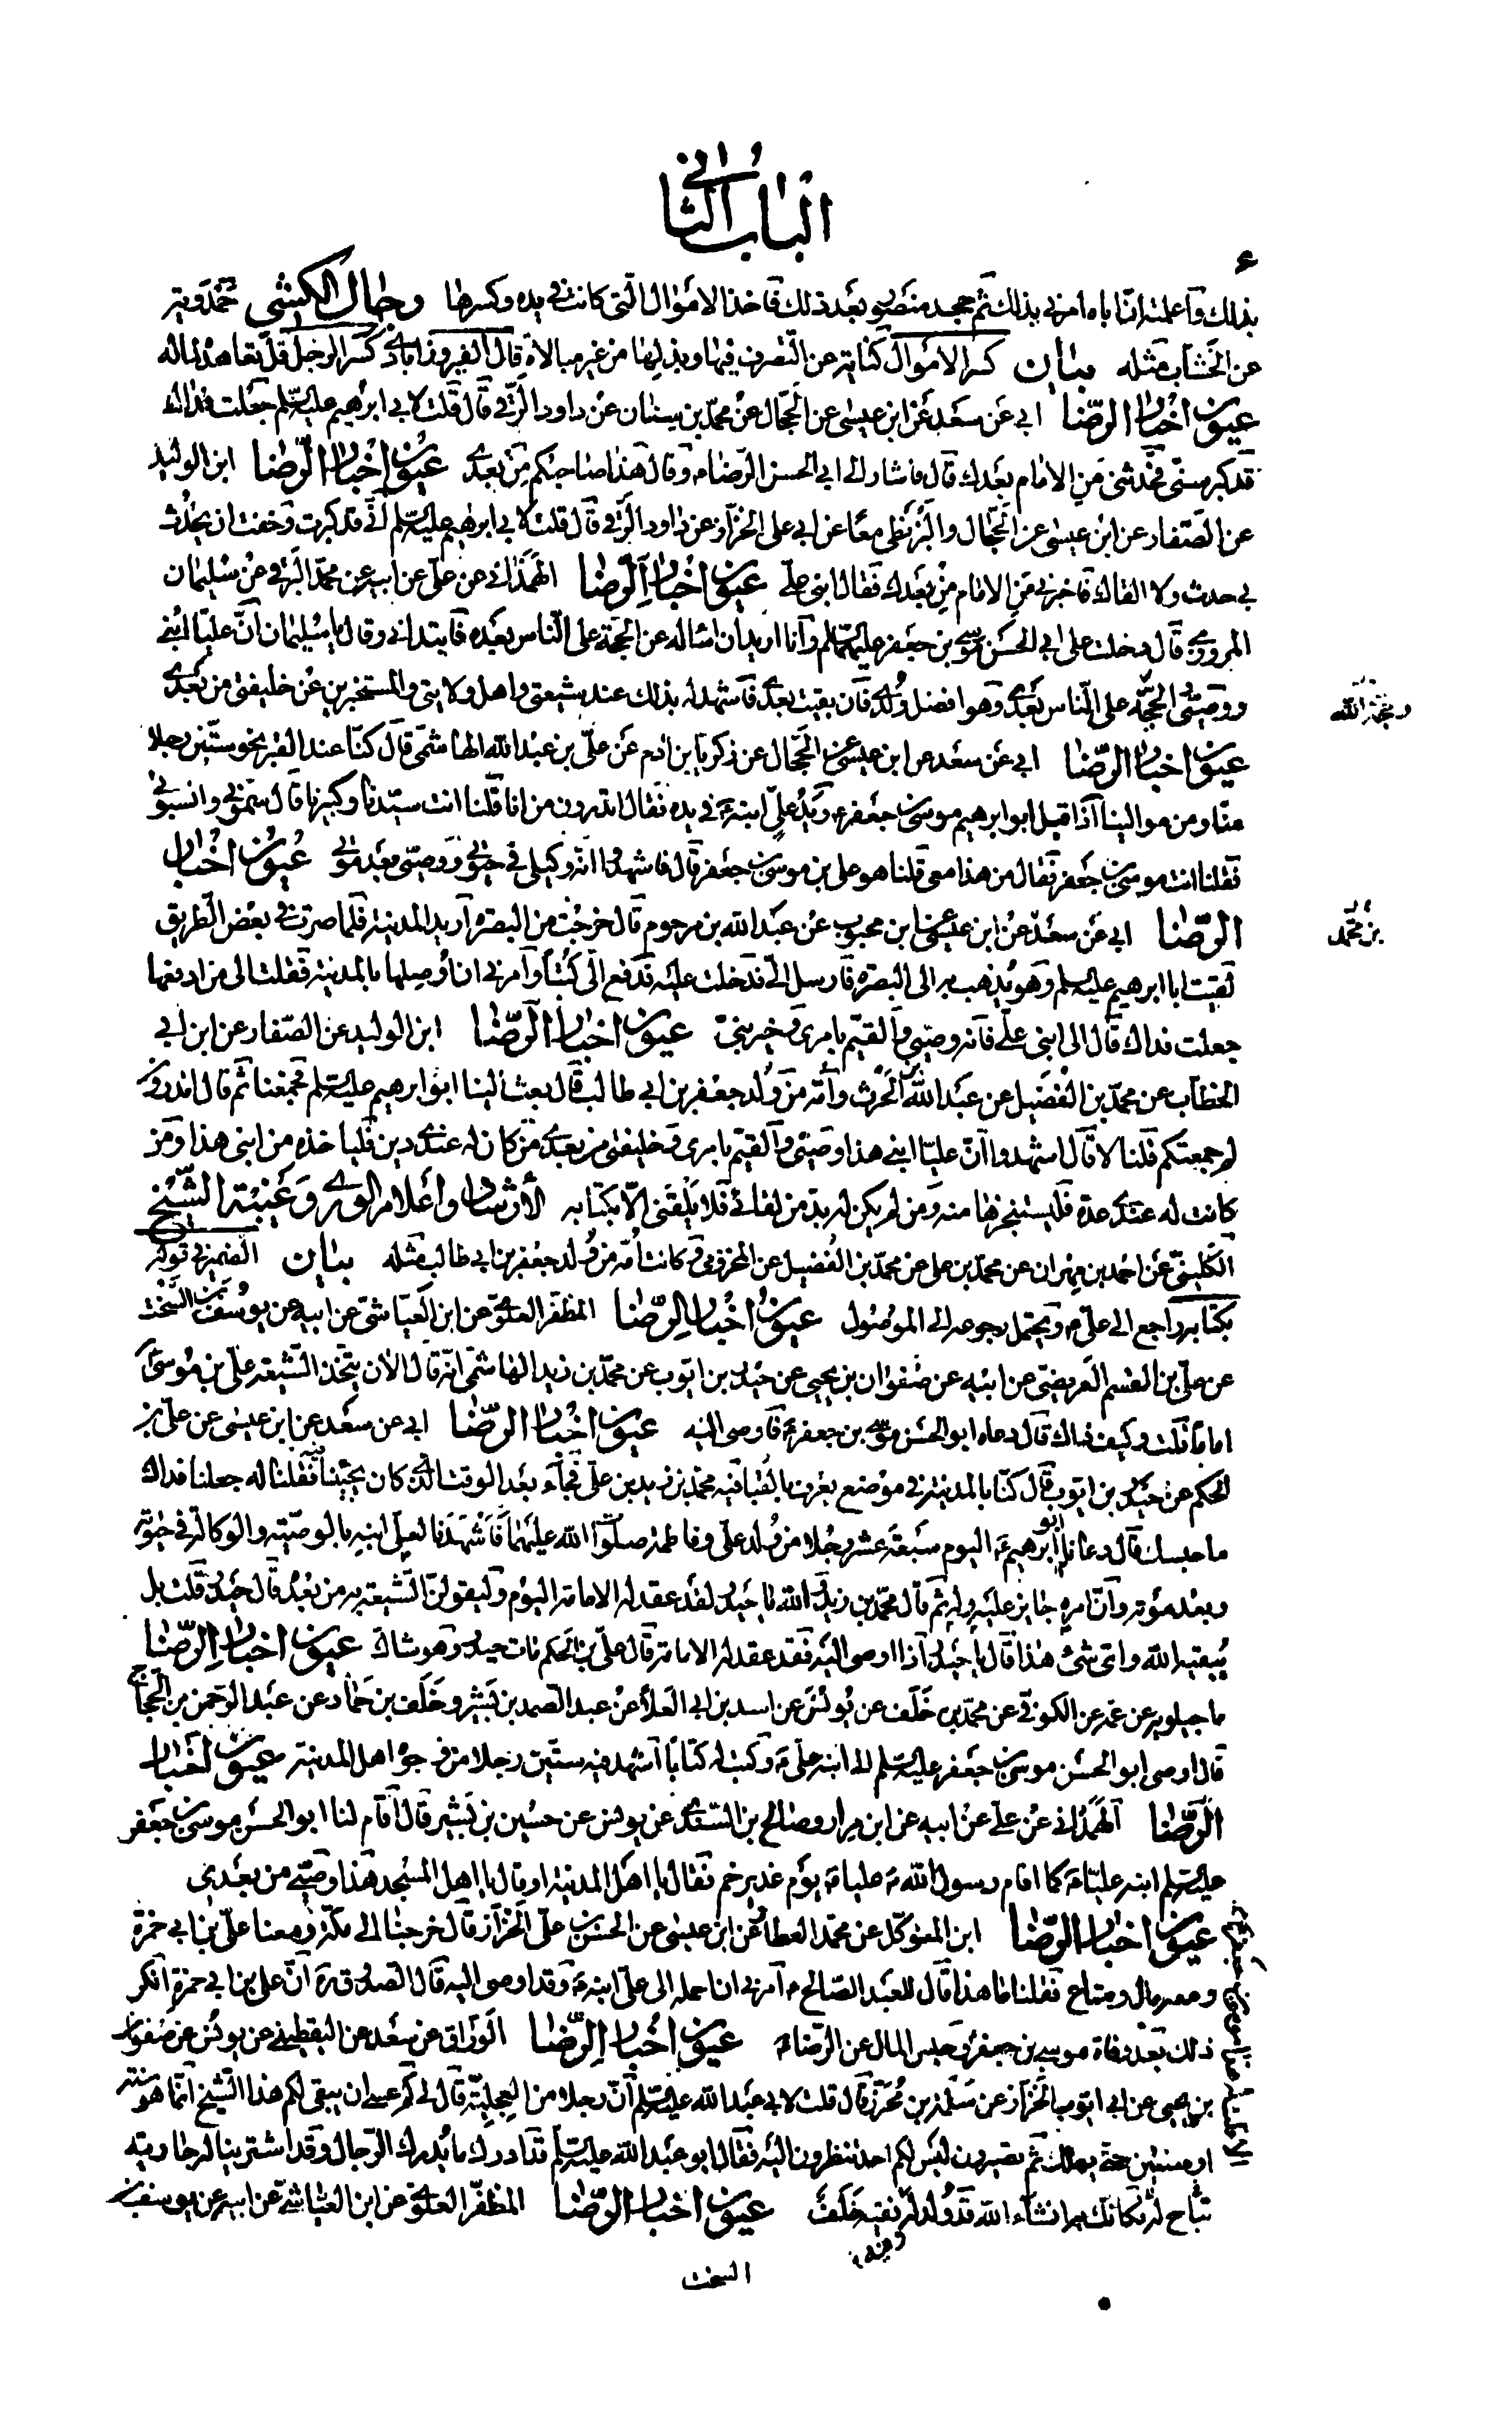 الباب الثاني
ع
بذلك واعلمته ان اباه امرني بذلك ثم جحد منصور بعد ذلك فاخذ الاموال التي كانت في يده وكسرها رجال الكشي حمدويه
عن الخشاب مثله بيان كسر الاموال كناية عن التصرف فيها وبذلها من غير مبالاة قال الفيروزابادي كسر الرجل قل تعاهده لماله
عيون اخبار الرضا ابي عن سعد عن ابن عيسى عن الحجال عن محمد بن سنان عن داود الرقي قال قلت لابي ابرهيم عليه السلم جعلت فداك
قد كبر سني فحدثني من الامام بعدك قال فاشار الى ابي الحسن الرضا ع وقال هذا صاحبكم من بعدي عيون اخبار الرضا ابن الوليد
عن الصفار عن ابن عيسى عن الحجال والبزنطي معا عن ابي علي الخزاز عن داود الرقي قال قلت لابي ابرهيم عليه السلم اني قد كبرت وخفت ان يحدث
بي حدث ولا القاك فاخبرني من الامام من بعدك فقال ابني علي عيون اخبار الرضا الهمداني عن علي عن ابيه عن محمد البرقي عن سليمان
المروزي قال دخلت على ابي الحسن موسى بن جعفر عليهما السلم وانا اريد ان اساله عن الحجة على الناس بعده فابتداني وقال يا سليمان ان عليا ابني
ووصيي والحجة على الناس بعدي وهو افضل ولدي فان بقيت بعدي فاشهد له بذلك عند شيعتي واهل ولايتي والمستخبرين عن خليفتي من بعدي
عيون اخبار الرضا ابي عن سعد عن ابن عيسى عن الحجال عن زكريا بن ادم عن علي بن عبد الله الهاشمي قال كنا عند القبر نحو ستين رجلا
منا ومن موالينا اذ اقبل ابو ابرهيم موسى بن جعفر ع ويد علي ابنه ع في يده فقال اتدرون من انا قلنا انت سيدنا وكبيرنا قال سموني وانسبوني
فقلنا انت موسى بن جعفر فقال من هذا معي قلنا هو علي بن موسى بن جعفر قال فاشهدوا انه وكيلي في حيوتي ووصيي بعد موتي عيون اخبار
الرضا ابي عن سعد عن ابن عيسى عن ابن محبوب عن عبد الله بن مرحوم قال خرجت من البصرة اريد المدينة فلما صرت في بعض الطريق
بن محمد
لقيت ابا ابرهيم عليه السلم وهو يذهب به الى البصرة فارسل الي فدخلت عليه فدفع الي كتبا وامرني ان اوصلها بالمدينة فقلت الى من ادفعها
جعلت فداك قال الى ابني علي فانه وصيي والقيم بامري وخير بني عيون اخبار الرضا ابن الوليد عن الصفار عن ابن ابي
الخطاب عن محمد بن الفضيل عن عبد الله بن الحرث وامه من ولد جعفر بن ابي طالب قال بعث الينا ابو ابرهيم عليه السلم فجمعنا ثم قال اتدرون
لم جمعتكم قلنا لا قال اشهدوا ان عليا ابني هذا وصيي والقيم بامري وخليفتي من بعدي من كان له عندي دين فلياخذه من ابني هذا ومن
كانت له عندي عدة فليستنجزها منه ومن لم يكن له بد من لقائي فلا يلقني الا بكتابه الارشاد واعلام الورى وغيبة الشيخ
الكليني عن احمد بن مهران عن محمد بن علي عن محمد بن الفضيل عن المخزومي وكانت امه من ولد جعفر بن ابي طالب مثله بيان الضمير في قوله
بكتابه راجع الى علي ع ويحتمل رجوعه الى الموصول عيون اخبار الرضا المظفر العلوي عن ابن العياشي عن ابيه عن يوسف بن السخت
عن علي بن القسم العريضي عن ابيه عن صفوان بن يحيى عن حيدر بن ايوب عن محمد بن زيد الهاشمي انه قال الان يتخذ الشيعة علي بن موسى ع
اماما قلت وكيف ذاك قال دعاه ابو الحسن موسى بن جعفر ع فاوصى اليه عيون اخبار الرضا ابي عن سعد عن ابن عيسى عن علي بن
الحكم عن حيدر بن ايوب قال كنا بالمدينة في موضع يعرف بالقبا فيه محمد بن زيد بن علي فجاء بعد الوقت الذي كان يجيئنا فيه فقلنا له جعلنا فداك
ما حبسك قال دعانا ابو ابرهيم ع اليوم سبعة عشر رجلا من ولد علي وفاطمة صلوات الله عليهما فاشهدنا لعلي ابنه بالوصية والوكالة في حيوته
وبعد موته وان امره جائز عليه وله ثم قال محمد بن زيد والله يا حيدر لقد عقد له الامامة اليوم وليقولن الشيعة به من بعده قال حيدر قلت بل
يبقيه الله واي شيء هذا قال يا حيدر اذا اوصى اليه فقد عقد له الامامة قال علي بن الحكم مات حيدر وهو شاك عيون اخبار الرضا
ماجيلويه عن عمه عن الكوفي عن محمد بن خلف عن يونس عن اسد بن ابي العلاء عن عبد الصمد بن بشير وخلف بن حماد عن عبد الرحمن بن الحجاج
قال اوصى ابو الحسن موسى بن جعفر عليه السلم الى ابنه علي ع وكتب له كتابا اشهد فيه ستين رجلا من وجوه اهل المدينة عيون اخبار
الرضا الهمداني عن علي عن ابيه عن ابن مرار وصالح بن السندي عن يونس عن حسين بن بشير قال اقام لنا ابو الحسن موسى بن جعفر
عليه السلم ابنه عليا ع كما اقام رسول الله ص عليا ع يوم غدير خم فقال يا اهل المدينة او قال يا اهل المسجد هذا وصيي من بعدي
عيون اخبار الرضا ابن المتوكل عن محمد العطار عن ابن عيسى عن الحسن بن علي الخزاز قال خرجنا الى مكة ومعنا علي بن ابي حمزة
ومعه مال ومتاع فقلنا ما هذا قال للعبد الصالح ع امرني ان احمله الى علي ابنه ع وقد اوصى اليه قال الصدوق ره ان علي بن ابي حمزة انكر
ذلك بعد وفاة موسى بن جعفر ع وحبس المال عن الرضا ع عيون اخبار الرضا الوراق عن سعد عن اليقطيني عن يونس عن صفوان
بن يحيى عن ابي ايوب الخزاز عن سلمة بن محرز قال قلت لابي عبد الله عليه السلم ان رجلا من العجلية قال لي كم عسى ان يبقى لكم هذا الشيخ انما هو سنة
او سنتين حتى يهلك ثم تصيرون ليس لكم احد تنظرون اليه فقال ابو عبد الله عليه السلم قد ادرك ما يدرك الرجال وقد اشترينا له جارية
تباح له فكانك به انشاء الله قد ولد له فقيه خلف عيون اخبار الرضا المظفر العلوي عن ابن العياشي عن ابيه عن يوسف بن
السخت